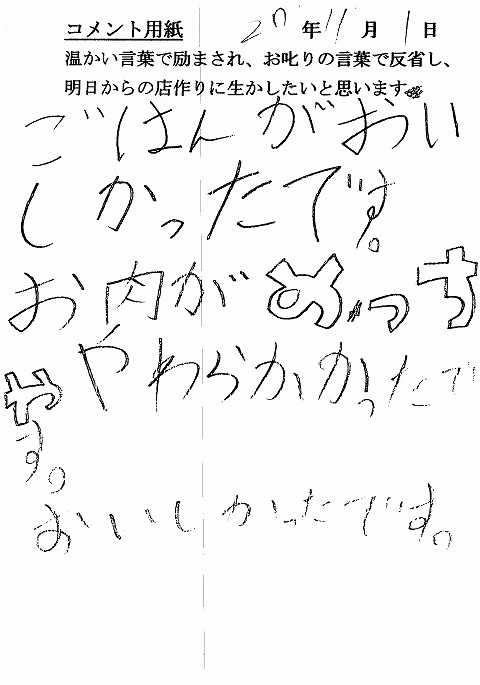 コメント用紙 20年11月1日
温かい言葉で励まされ、お叱りの言葉で反省し、
明日からの店作りに生かしたいと思います
ごはんがおい
しかったです。
お肉がめっち
ゃやわらかかったで
す。
おいしかったです。